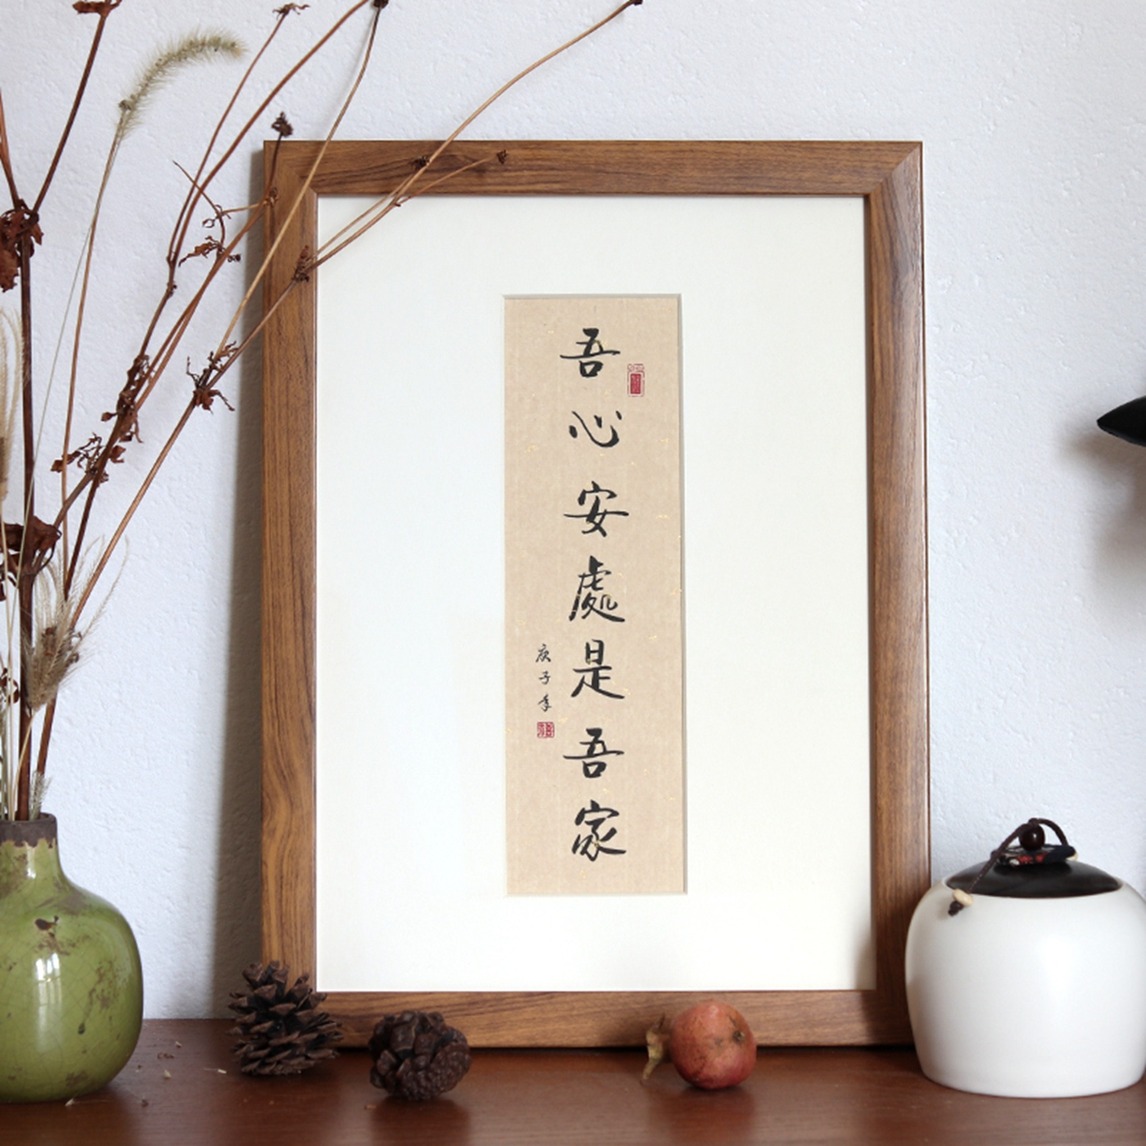 吾心安處是吾家
庚子年